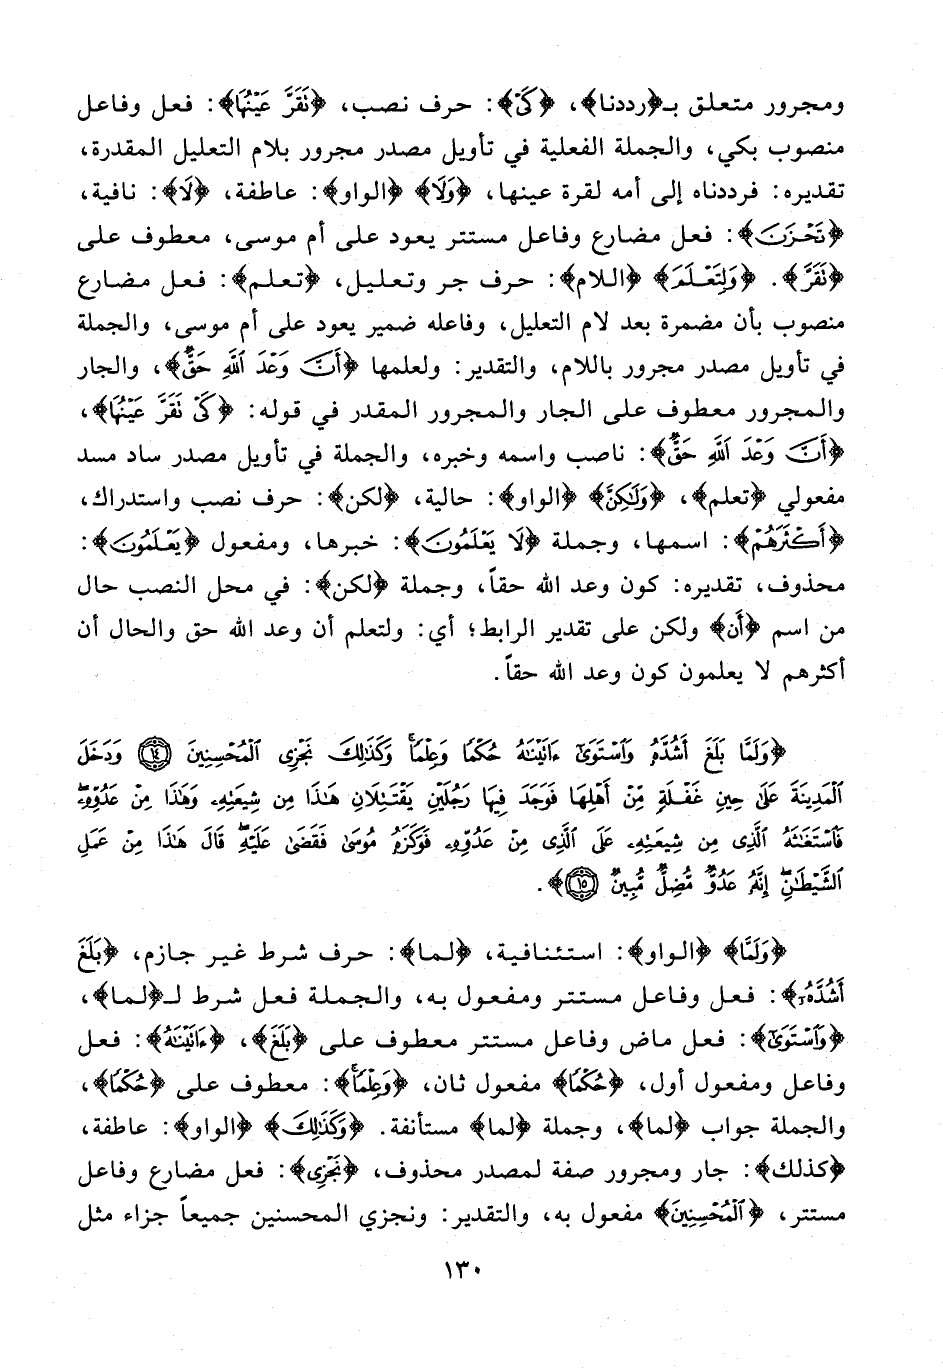 ومجرور متعلق بـ﴿رددنا﴾، ﴿كَىْ﴾: حرف نصب، ﴿تَقَرَّ عَيْنُهَا﴾: فعل وفاعل
منصوب بكي، والجملة الفعلية في تأويل مصدر مجرور بلام التعليل المقدرة،
تقديره: فرددناه إلى أمه لقرة عينها، ﴿وَلَا﴾ ﴿الواو﴾: عاطفة، ﴿لَا﴾: نافية،
﴿تَحْزَنَ﴾: فعل مضارع وفاعل مستتر يعود على أم موسى، معطوف على
﴿تَقَرَّ﴾. ﴿وَلِتَعْلَمَ﴾ ﴿اللام﴾: حرف جر وتعليل، ﴿تعلم﴾: فعل مضارع
منصوب بأن مضمرة بعد لام التعليل، وفاعله ضمير يعود على أم موسى، والجملة
في تأويل مصدر مجرور باللام، والتقدير: ولعلمها ﴿أَنَّ وَعْدَ ٱللَّهِ حَقٌّ﴾، والجار
والمجرور معطوف على الجار والمجرور المقدر في قوله: ﴿كَىْ تَقَرَّ عَيْنُهَا﴾،
﴿أَنَّ وَعْدَ ٱللَّهِ حَقٌّ﴾: ناصب واسمه وخبره، والجملة في تأويل مصدر ساد مسد
مفعولي ﴿تعلم﴾، ﴿وَلَٰكِنَّ﴾ ﴿الواو﴾: حالية، ﴿لكن﴾: حرف نصب واستدراك،
﴿أَكْثَرَهُمْ﴾: اسمها، وجملة ﴿لَا يَعْلَمُونَ﴾: خبرها، ومفعول ﴿يَعْلَمُونَ﴾:
محذوف، تقديره: كون وعد الله حقاً، وجملة ﴿لكن﴾: في محل النصب حال
من اسم ﴿أَن﴾ ولكن على تقدير الرابط؛ أي: ولتعلم أن وعد الله حق والحال أن
أكثرهم لا يعلمون كون وعد الله حقاً.
﴿وَلَمَّا بَلَغَ أَشُدَّهُۥ وَٱسْتَوَىٰٓ ءَاتَيْنَٰهُ حُكْمًا وَعِلْمًا ۚ وَكَذَٰلِكَ نَجْزِى ٱلْمُحْسِنِينَ ⁧١٤⁩ وَدَخَلَ
ٱلْمَدِينَةَ عَلَىٰ حِينِ غَفْلَةٍ مِّنْ أَهْلِهَا فَوَجَدَ فِيهَا رَجُلَيْنِ يَقْتَتِلَانِ هَٰذَا مِن شِيعَتِهِۦ وَهَٰذَا مِنْ عَدُوِّهِۦ ۖ
فَٱسْتَغَٰثَهُ ٱلَّذِى مِن شِيعَتِهِۦ عَلَى ٱلَّذِى مِنْ عَدُوِّهِۦ فَوَكَزَهُۥ مُوسَىٰ فَقَضَىٰ عَلَيْهِ ۖ قَالَ هَٰذَا مِنْ عَمَلِ
ٱلشَّيْطَٰنِ ۖ إِنَّهُۥ عَدُوٌّ مُّضِلٌّ مُّبِينٌ ١٥﴾.
﴿وَلَمَّا﴾ ﴿الواو﴾: استئنافية، ﴿لما﴾: حرف شرط غير جازم، ﴿بَلَغَ
أَشُدَّهُۥ﴾: فعل وفاعل مستتر ومفعول به، والجملة فعل شرط لـ﴿لما﴾،
﴿وَٱسْتَوَىٰٓ﴾: فعل ماض وفاعل مستتر معطوف على ﴿بَلَغَ﴾، ﴿ءَاتَيْنَٰهُ﴾: فعل
وفاعل ومفعول أول، ﴿حُكْمًا﴾ مفعول ثان، ﴿وَعِلْمًا ۚ﴾: معطوف على ﴿حُكْمًا﴾،
والجملة جواب ﴿لما﴾، وجملة ﴿لما﴾ مستأنفة. ﴿وَكَذَٰلِكَ﴾ ﴿الواو﴾: عاطفة،
﴿كذلك﴾: جار ومجرور صفة لمصدر محذوف، ﴿نَجْزِى﴾: فعل مضارع وفاعل
مستتر، ﴿ٱلْمُحْسِنِينَ﴾ مفعول به، والتقدير: ونجزي المحسنين جميعاً جزاء مثل
١٣٠